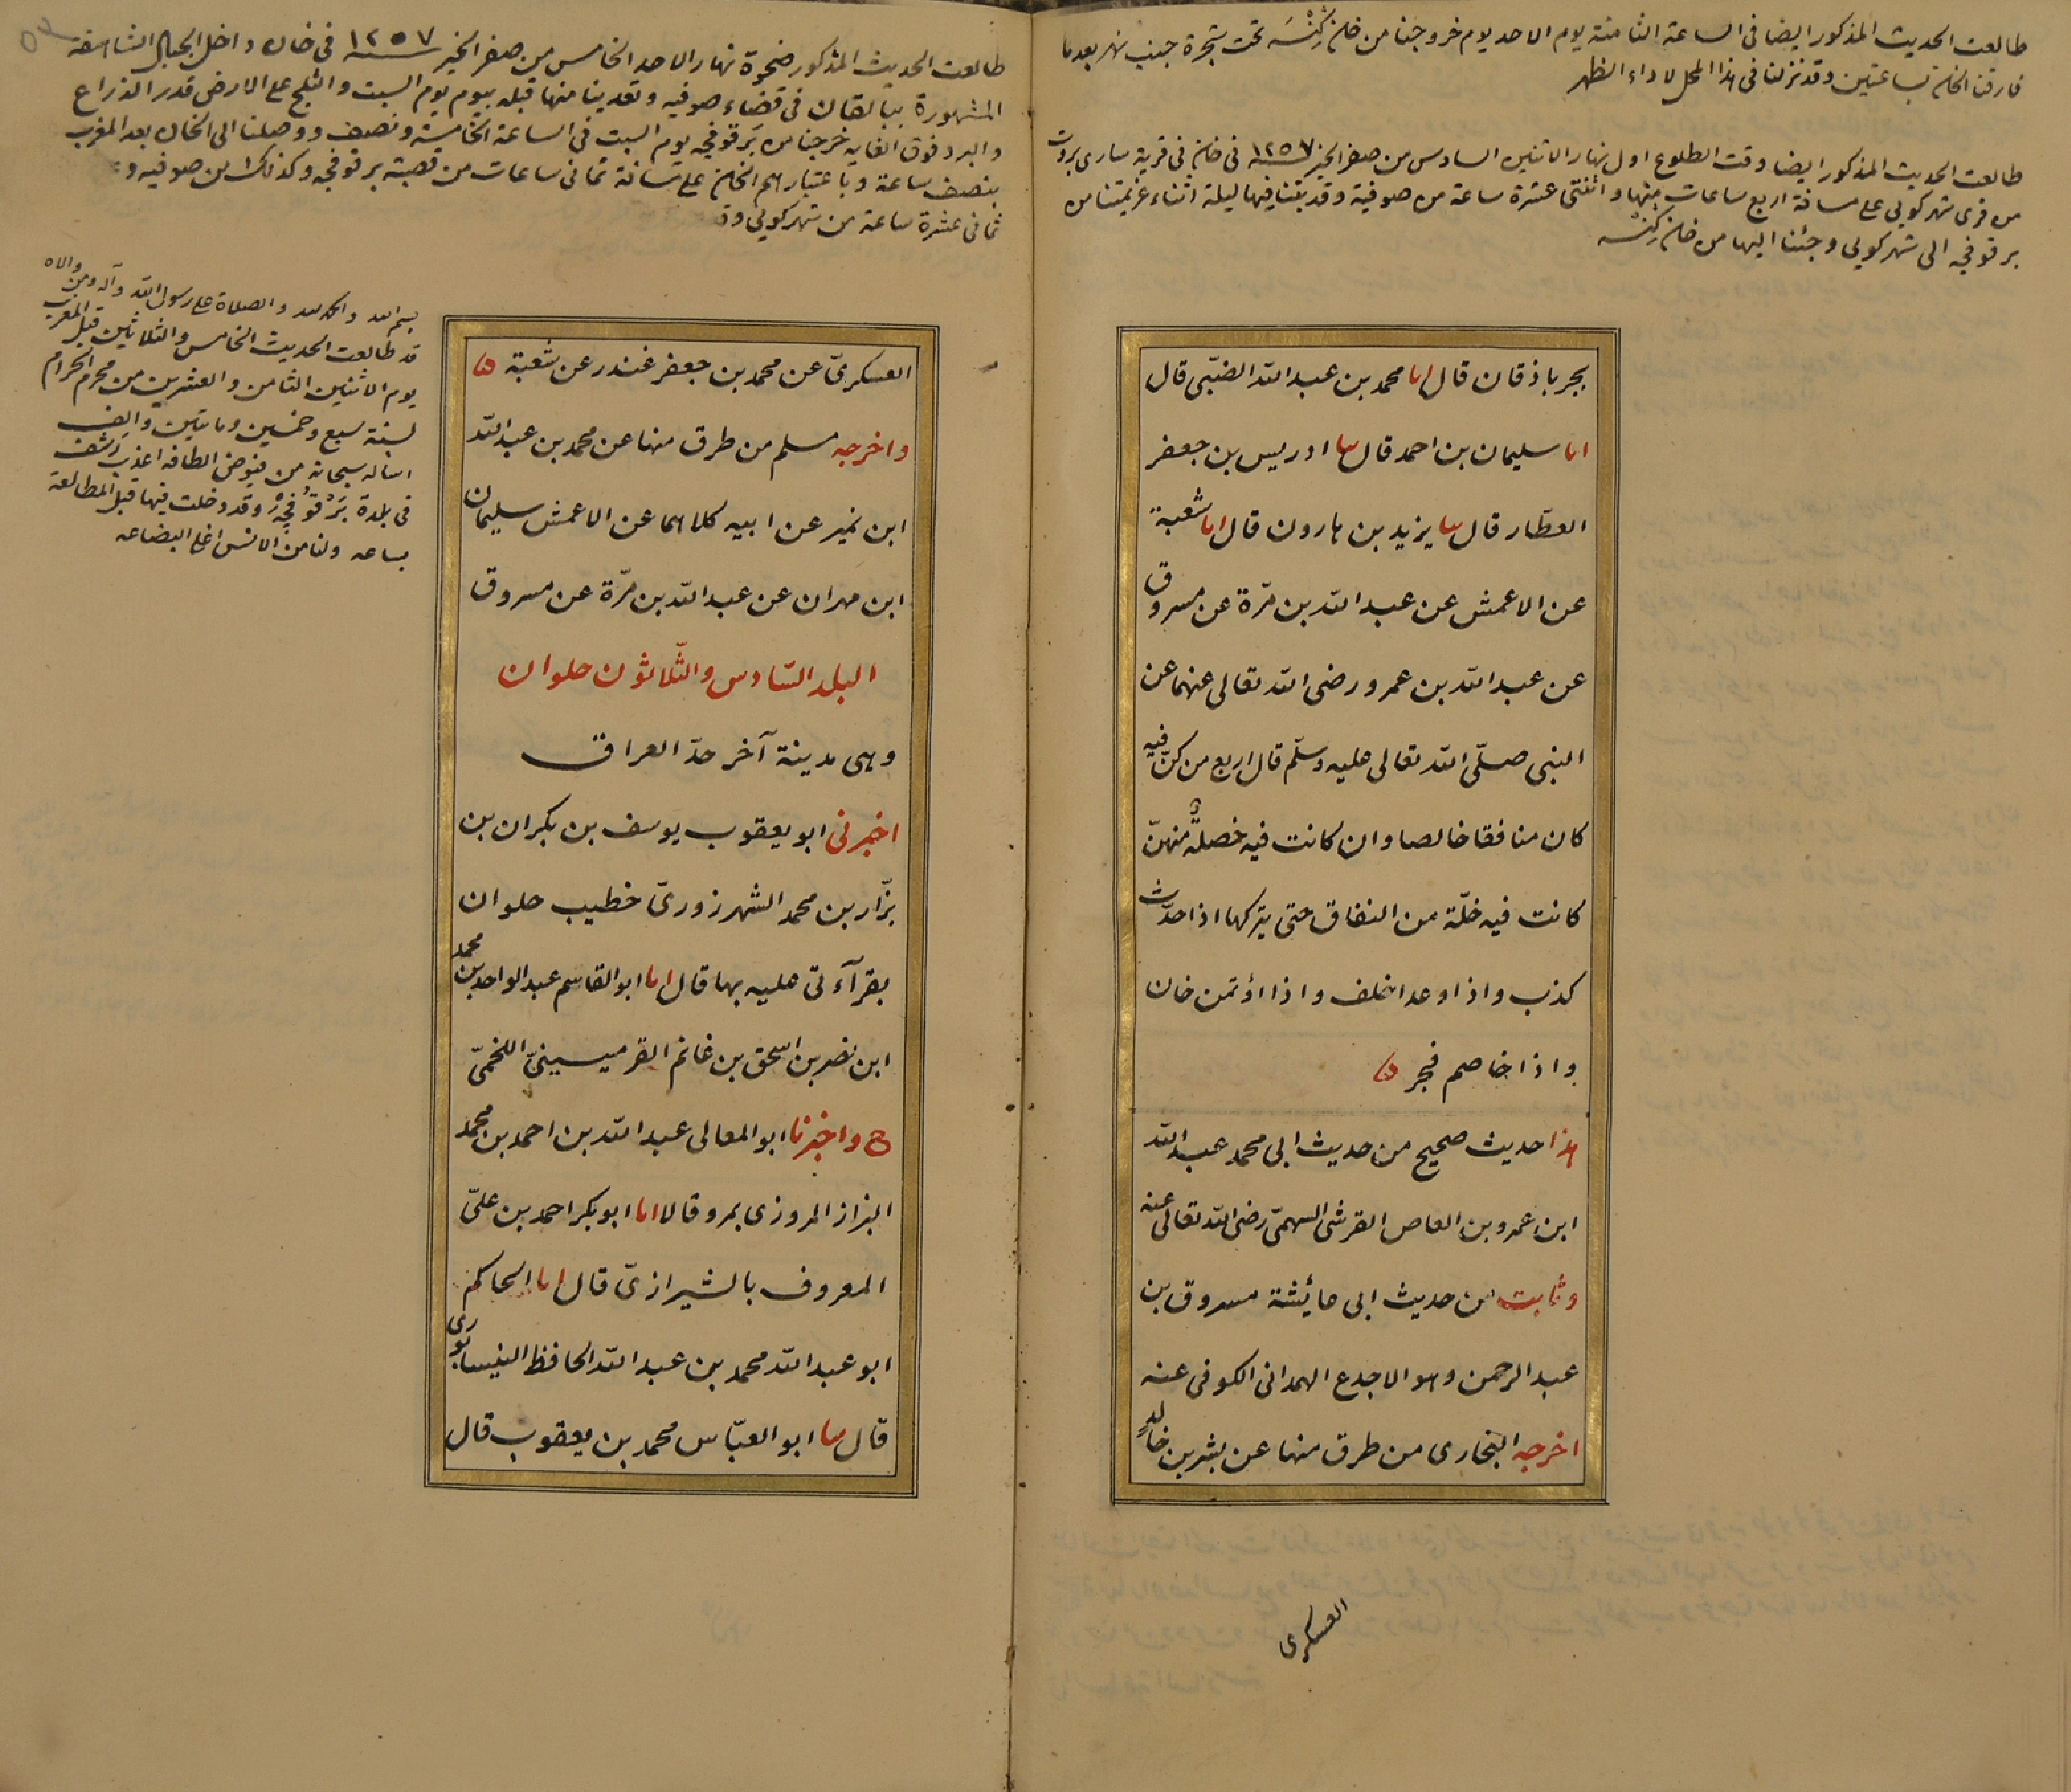 طالعت الحديث المذكور ايضا فى الساعة الثامنة يوم الاحد يوم خروجنا من خان كِنْسَه تحت شجرة جنب نهر بعد ما
فارقنا الخان بساعتين وقد نزلنا فى هذا المحل لاداء الظهر
طالعت الحديث المذكور ايضا وقت الطلوع اول نهار الاثنين السادس من صفر الخير سنة ١٢٥٧ فى خان فى قرية سارى بروت
من قرى شهركويى على مسافة اربع ساعات منها واثنتى عشرة ساعة من صوفية وقد بتنا فيها ليلة اثناء عزيمتنا من
برقوفجه الى شهركويى وجئنا اليها من خان كِنْسه
بجرباذقان قال انا محمد بن عبد الله الضبّى قال
انا سليمان بن احمد قال نا ادريس بن جعفر
العطّار قال نا يزيد بن هارون قال انا شعبة
عن الاعمش عن عبد الله بن مرّة عن مسروق
عن عبد الله بن عمرو رضى الله تعالى عنهما عن
النبى صلّى الله تعالى عليه وسلّم قال اربع من كنّ فيه
كان منافقا خالصا وان كانت فيه خصلة منهنّ
كانت فيه خلّة من النفاق حتى يتركها اذا حدّث
كذب واذا وعد اخلف واذا اؤتمن خان
واذا خاصم فجر
هذا حديث صحيح من حديث ابى محمد عبد الله
ابن عمرو بن العاص القرشى السهمىّ رضى الله تعالى عنه
وثابت من حديث ابى عائشة مسروق بن
عبد الرحمن وهو الاجدع الهمدانى الكوفى عنه
اخرجه البخارى من طرق منها عن بشر بن خالد
العسكرى
طالعت الحديث المذكور ضحوة نهار الاحد الخامس من صفر الخير سنة ١٢٥٧ فى خان داخل الجبال الشاهقة
المشهورة ببالقان فى قضاء صوفيه وتعدينا منها قبله بيوم يوم السبت والثلج على الارض قدر الذراع
والبرد فوق الغايه خرجنا من بَرقوفجه يوم السبت فى الساعة الخامسة ونصف ووصلنا الى الخان بعد المغرب
بنصف ساعة وباعتبارهم الخان على مسافة ثمانى ساعات من قصبة برقوفجه وكذلك من صوفيه و
ثمانى عشرة ساعة من شهركويى
بسم الله والحمد لله والصلاة على رسول الله وآله ومن والاه
قد طالعت الحديث الخامس والثلاثين قبل المغرب
يوم الاثنين الثامن والعشرين من محرم الحرام
لسنة سبع وخمسين ومايتين والف
اساله سبحانه من فيوض الطافه اعذب رشف
فى بلدة بَرْقُوفْجَه وقد دخلت فيها قبل المطالعة
بساعه ولنا من الانس اغلى البضاعه
العسكرىّ عن محمد بن جعفر غندر عن شعبة
واخرجه مسلم من طرق منها عن محمد بن عبد الله
ابن نمير عن ابيه كلاهما عن الاعمش سليمان
ابن مهران عن عبد الله بن مرّة عن مسروق
البلد السّادس والثّلاثون حلوان
وهى مدينة آخر حدّ العراق
اخبرنى ابو يعقوب يوسف بن بكران بن
بزّار بن محمد الشهرزورىّ خطيب حلوان
بقرآءتى عليه بها قال انا ابو القاسم عبد الواحد بن محمد
ابن نصر بن اسحق بن غانم القرميسينىّ اللخمىّ
ح واخبرنا ابو المعالى عبد الله بن احمد بن محمد
البزاز المروزى بمرو قالا انا ابو بكر احمد بن علىّ
المعروف بالشيرازىّ قال انا الحاكم
ابو عبد الله محمد بن عبد الله الحافظ النيسابورى
قال نا ابو العبّاس محمد بن يعقوب قال